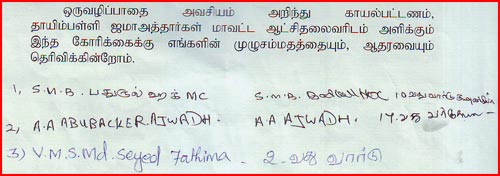 ஒருவழிப்பாதை அவசியம் அறிந்து காயல்பட்டணம்,
தாயிம்பள்ளி ஜமாஅத்தார்கள் மாவட்ட ஆட்சிதலைவரிடம் அளிக்கும்
இந்த கோரிக்கைக்கு எங்களின் முழுசம்மதத்தையும், ஆதரவையும்
தெரிவிக்கின்றோம்.
1, S.M.B. பதுருல் ஹக் MC S.M.B. 10வது வார்டு
2) A.A ABUBACKER.AJWADH. A A AJWADH. 17-வது
3) V.M.S.Md.Seyed Fathima. 2-வது வார்டு